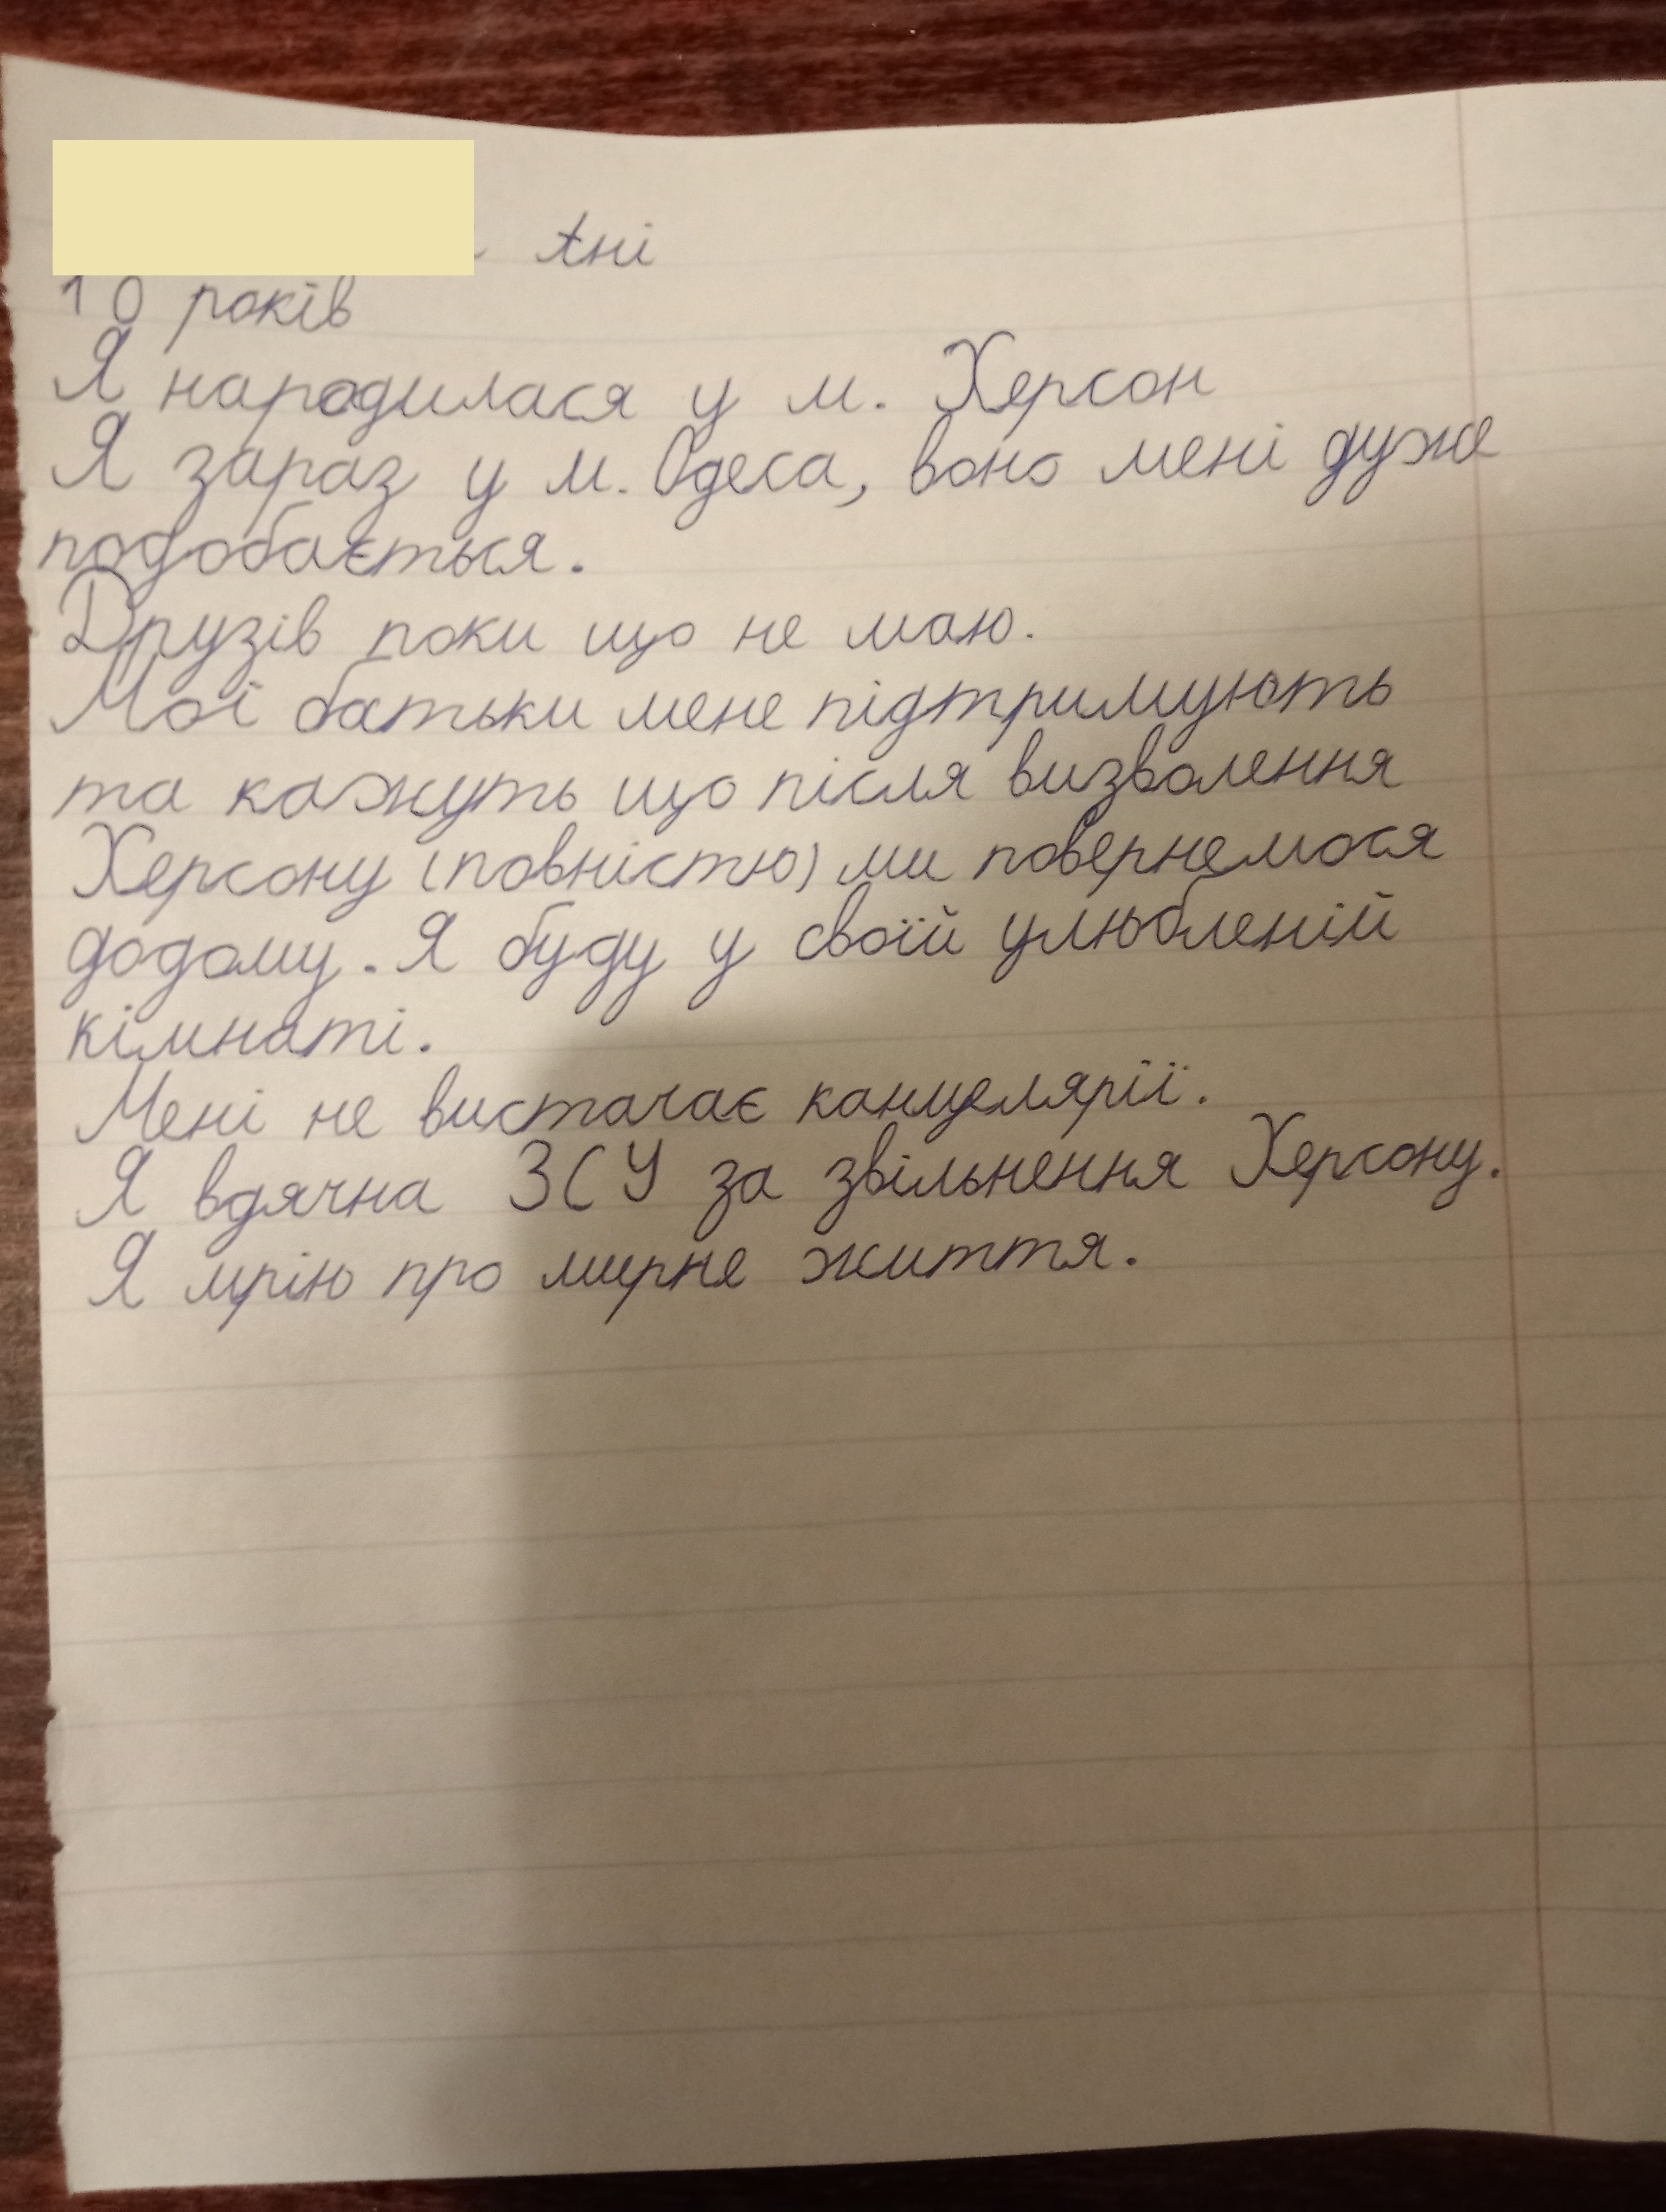 Ані
10 років
Я народилася у м. Херсон
Я зараз у м. Одеса, воно мені дуже
подобається.
Друзів поки що не маю.
Мої батьки мене підтримують
та кажуть що після визволення
Херсону (повністю) ми повернемося
додому. Я буду у своїй улюбленій
кімнаті.
Мені не вистачає канцелярії.
Я вдячна ЗСУ за звільнення Херсону.
Я мрію про мирне життя.